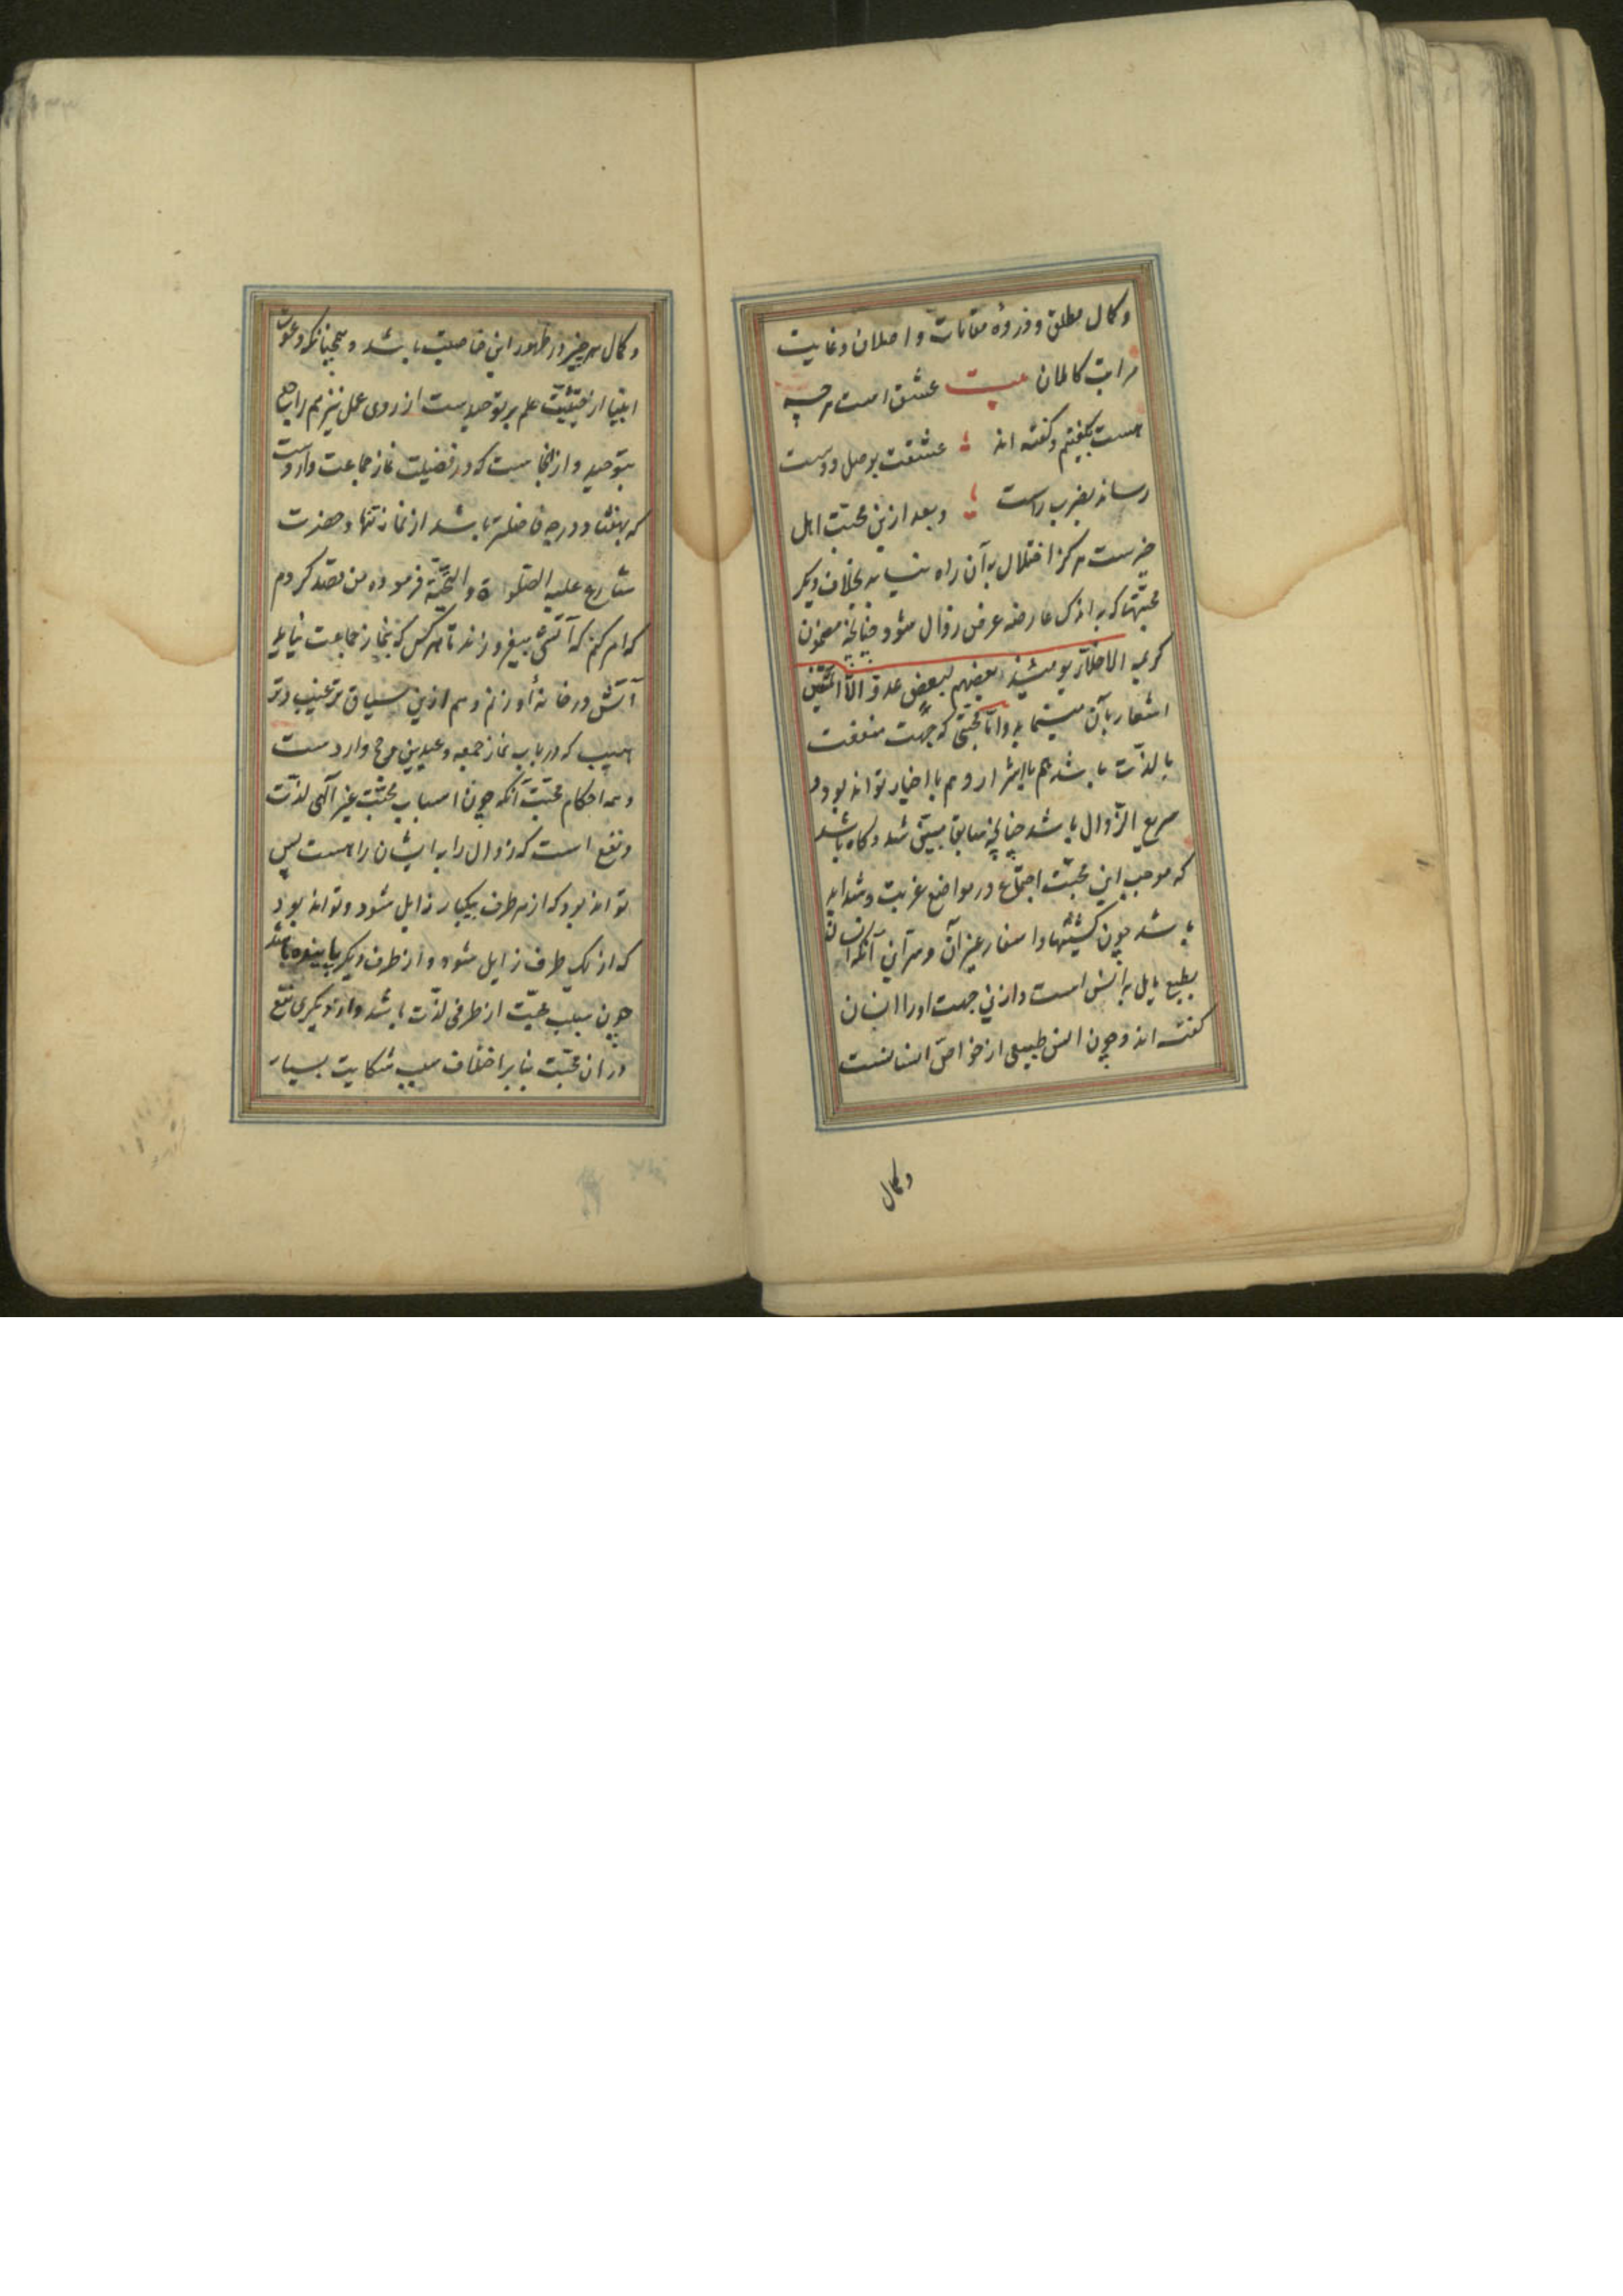 و کمال مطلق و ذروهٔ مقامات واصلان و غایت
مراتب کاملان بیت عشق است هر چه
هست بگفتیم و گفته اند ؛ عشقت بوصل دوست
رساند بضرب راست ؛ و بعد ازین محبّت اهل
خیرست هرکز اختلال به آن راه نیابد بخلاف دیکر
محبّتها که به اندک عارضه عرض زوال شود چنانچه مضمون
کریمه الاخلّاء یومئذ بعضهم لبعضٍ عدوّ الّا المتّقین
اشعار بآن مینماید و امّا محبّتی که جهت منفعت
یا لذّت باشد هم با اشرار و هم با اخیار تواند بود و
سریع الزّوال باشد چنانچه سابقا مبیّن شد و کاه باشد
که موجب این محبّت اجتماع در مواضع غربت و شداید
باشد چون کشتیها و اسفار و غیر آن و سرّ این آنکه انسان
بطبع مایل به انس است و ازین جهت او را انسان
کفته اند و چون انس طبیعی از خواصّ انسانست
و کمال
و کمال هر چیز در ظهور این خاصیت باشد و همچنانکه دعوت
انبیا از حیثیّت علم بر توحیدست از روی عمل نیز هم راجع
بتوحید و ازینجاست که در فضیلت نماز جماعت واردست
که بهفتاد درجه فاضلتر باشد از نماز تنها و حضرت
شارع علیه الصّلوة و التّحیّة فرموده من قصد کردم
که امر کنم که آتش بیفروزند تا هر کس که بنماز جماعت نیاید
آتش در خانهٔ او زنم و هم ازین سیاق ترغیب و تر
هیب که در باب نماز جمعه و عیدین و حج واردست
و همه احکام محبّت آنکه چون اسباب محبّت غیر آلهی لذّت
و نفع است که زوال را به ایشان راهست پس
تواند بود که از هر طرف بیکبار زایل شود و تواند بود
که از یک طرف زایل شود و از طرف دیکر پاینده باشد
چون سبب محبّت از طرفی لذّت باشد و از دیکری نفع
در ان محبّت بنابر اختلاف سبب شکایت بسیار